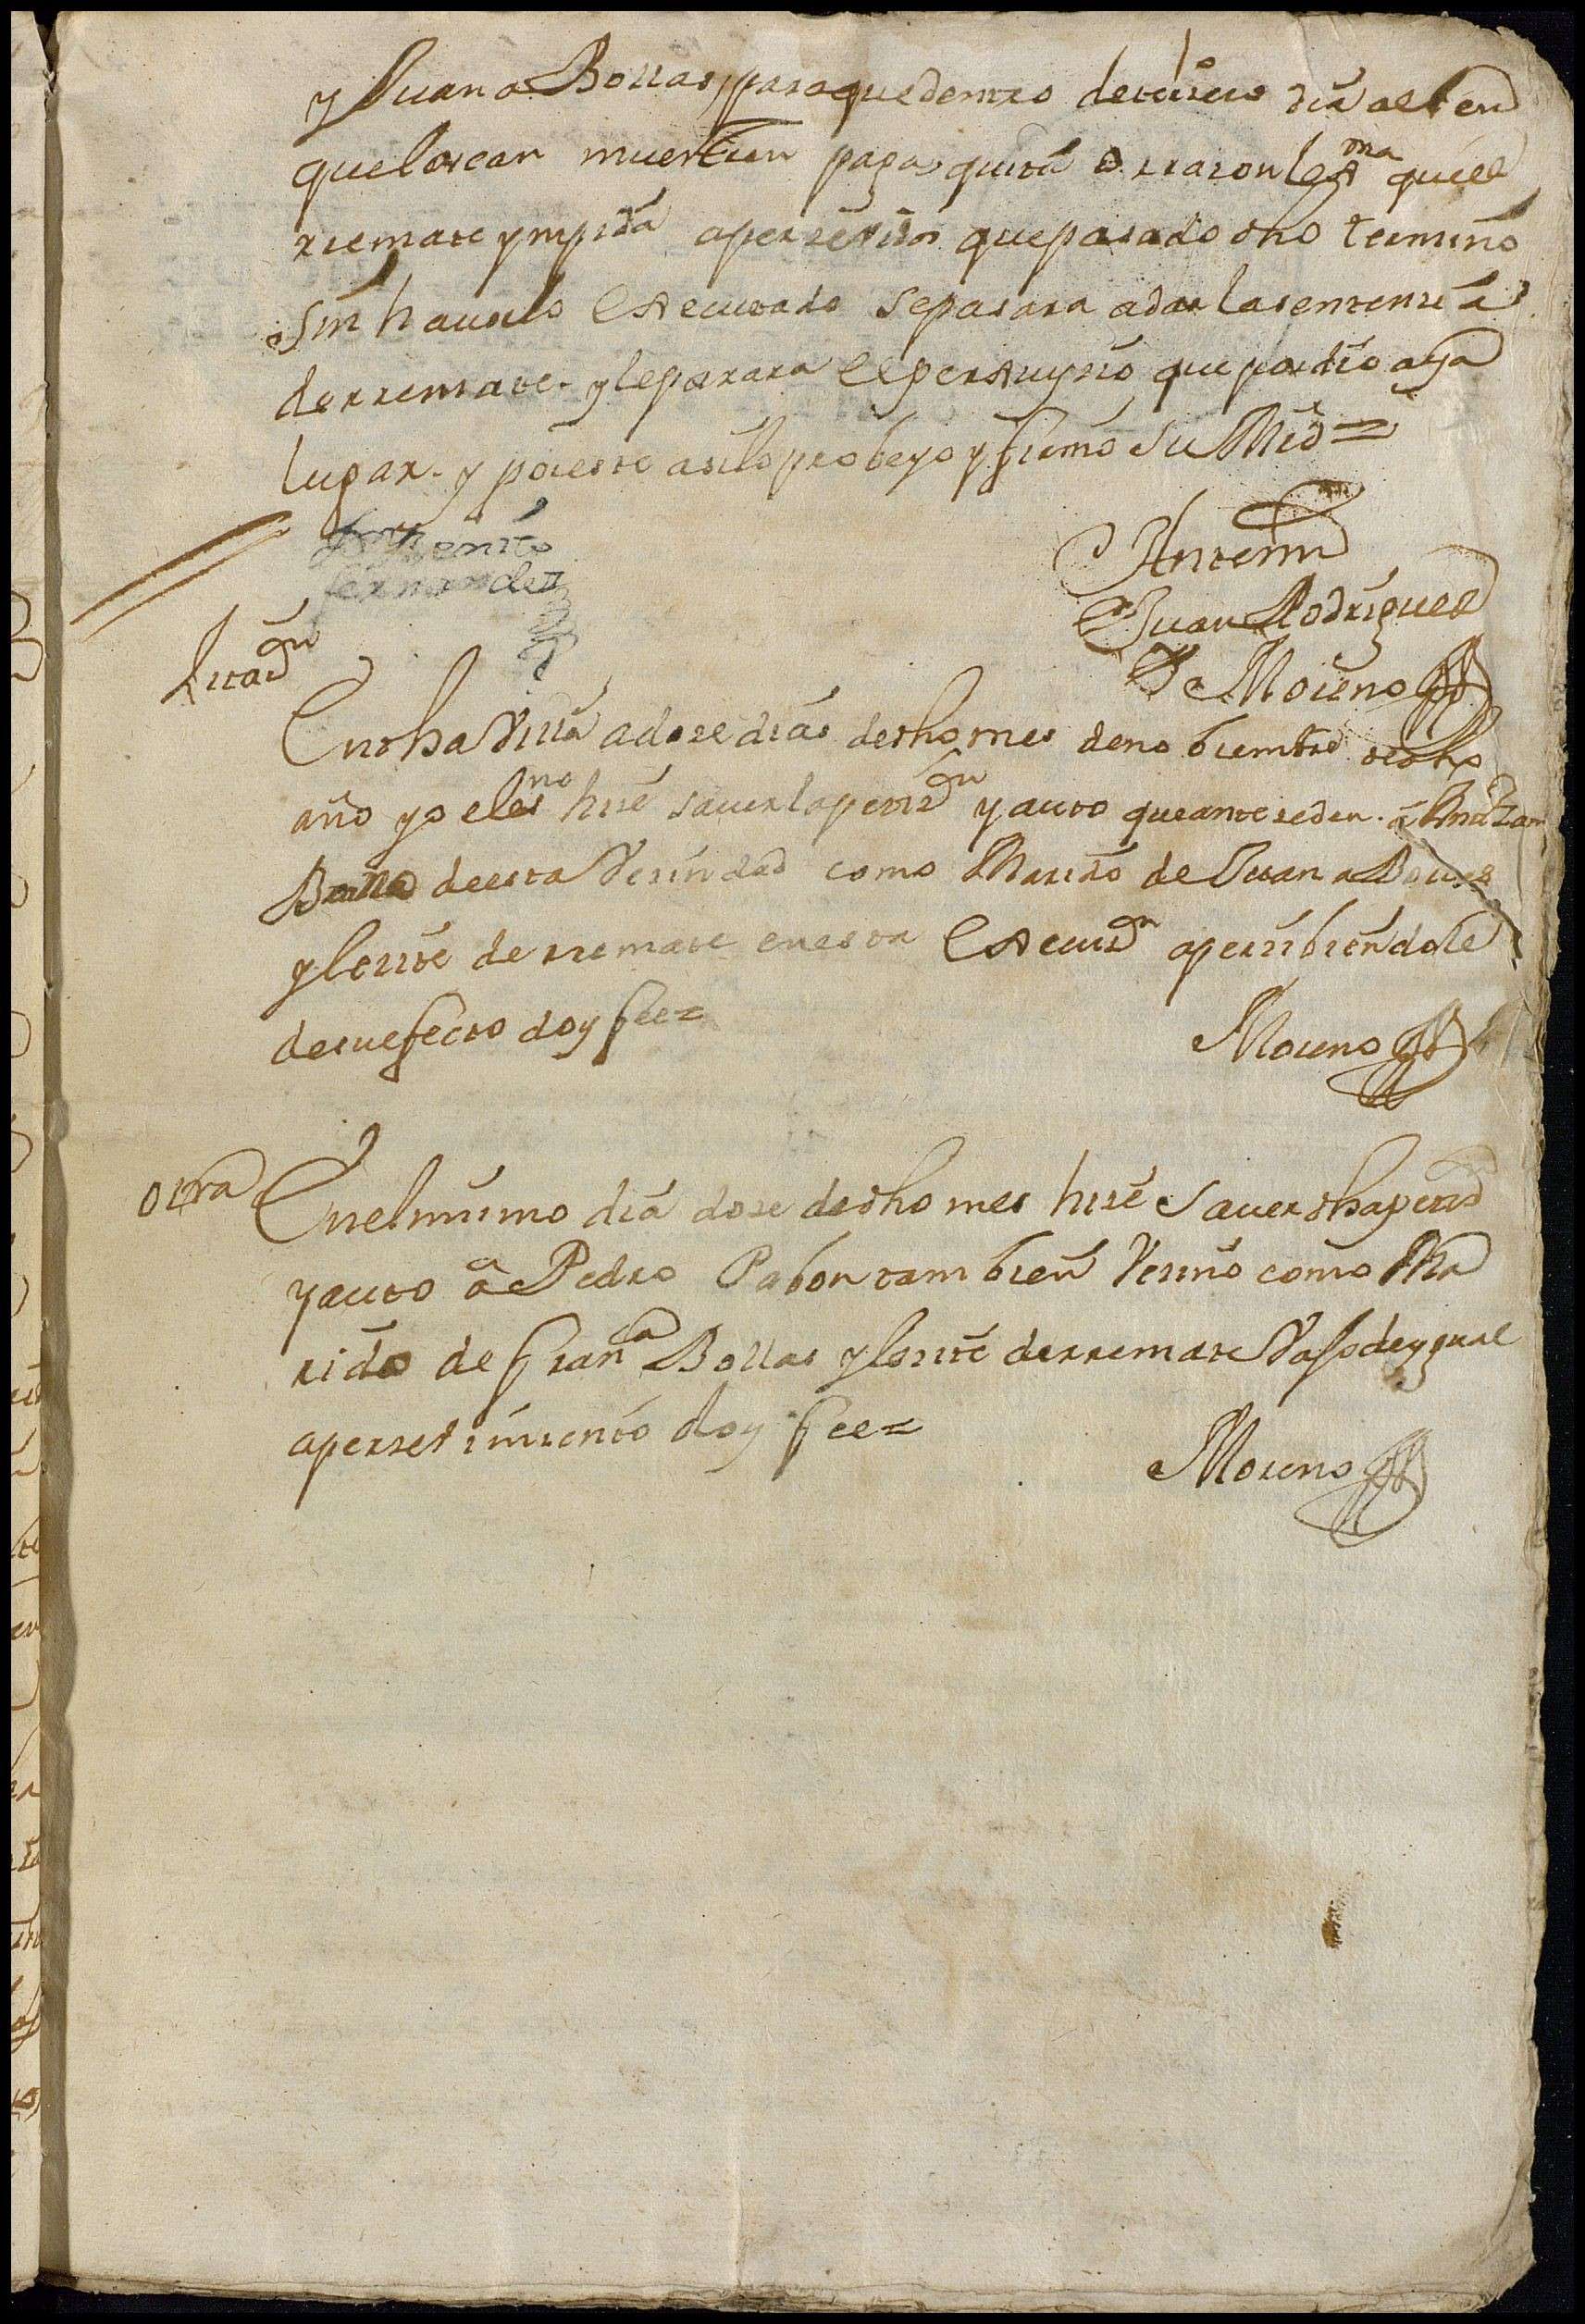 y Juana Borras, para que dentro de terсero dia alleu
que lo sean muestren paga quita o rrason lexma que el
rremate ympida apersevidos que pasado dho termino
sin haverlo executado se pasara a dar la sentensia
de rremate y le parara el perxuysio que por dro aya
lugar. y por este asi lo probeyo y firmo su Mrd =
Benito
fernandez
Antemi
Juan Rodriguez
Moreno
Zitasn
En dha Villa a dose dias de dho mes de nobiembre de dho
año yo el esno hise saver la petisn y auto que anteseden. a
de esta Vesindad como Marido de Juana Borras
y le site de rremate en esta execusn apersibiendole
de su efecto doy fee =
Moreno
otra
En el mismo dia dose de dho mes hise saver dha petisn
y auto a Pedro Pabon tambien Vesino como Ma
rido de franca Borras y le site de rremate Vajo de ygual
apersevimiento doy fee =
Moreno